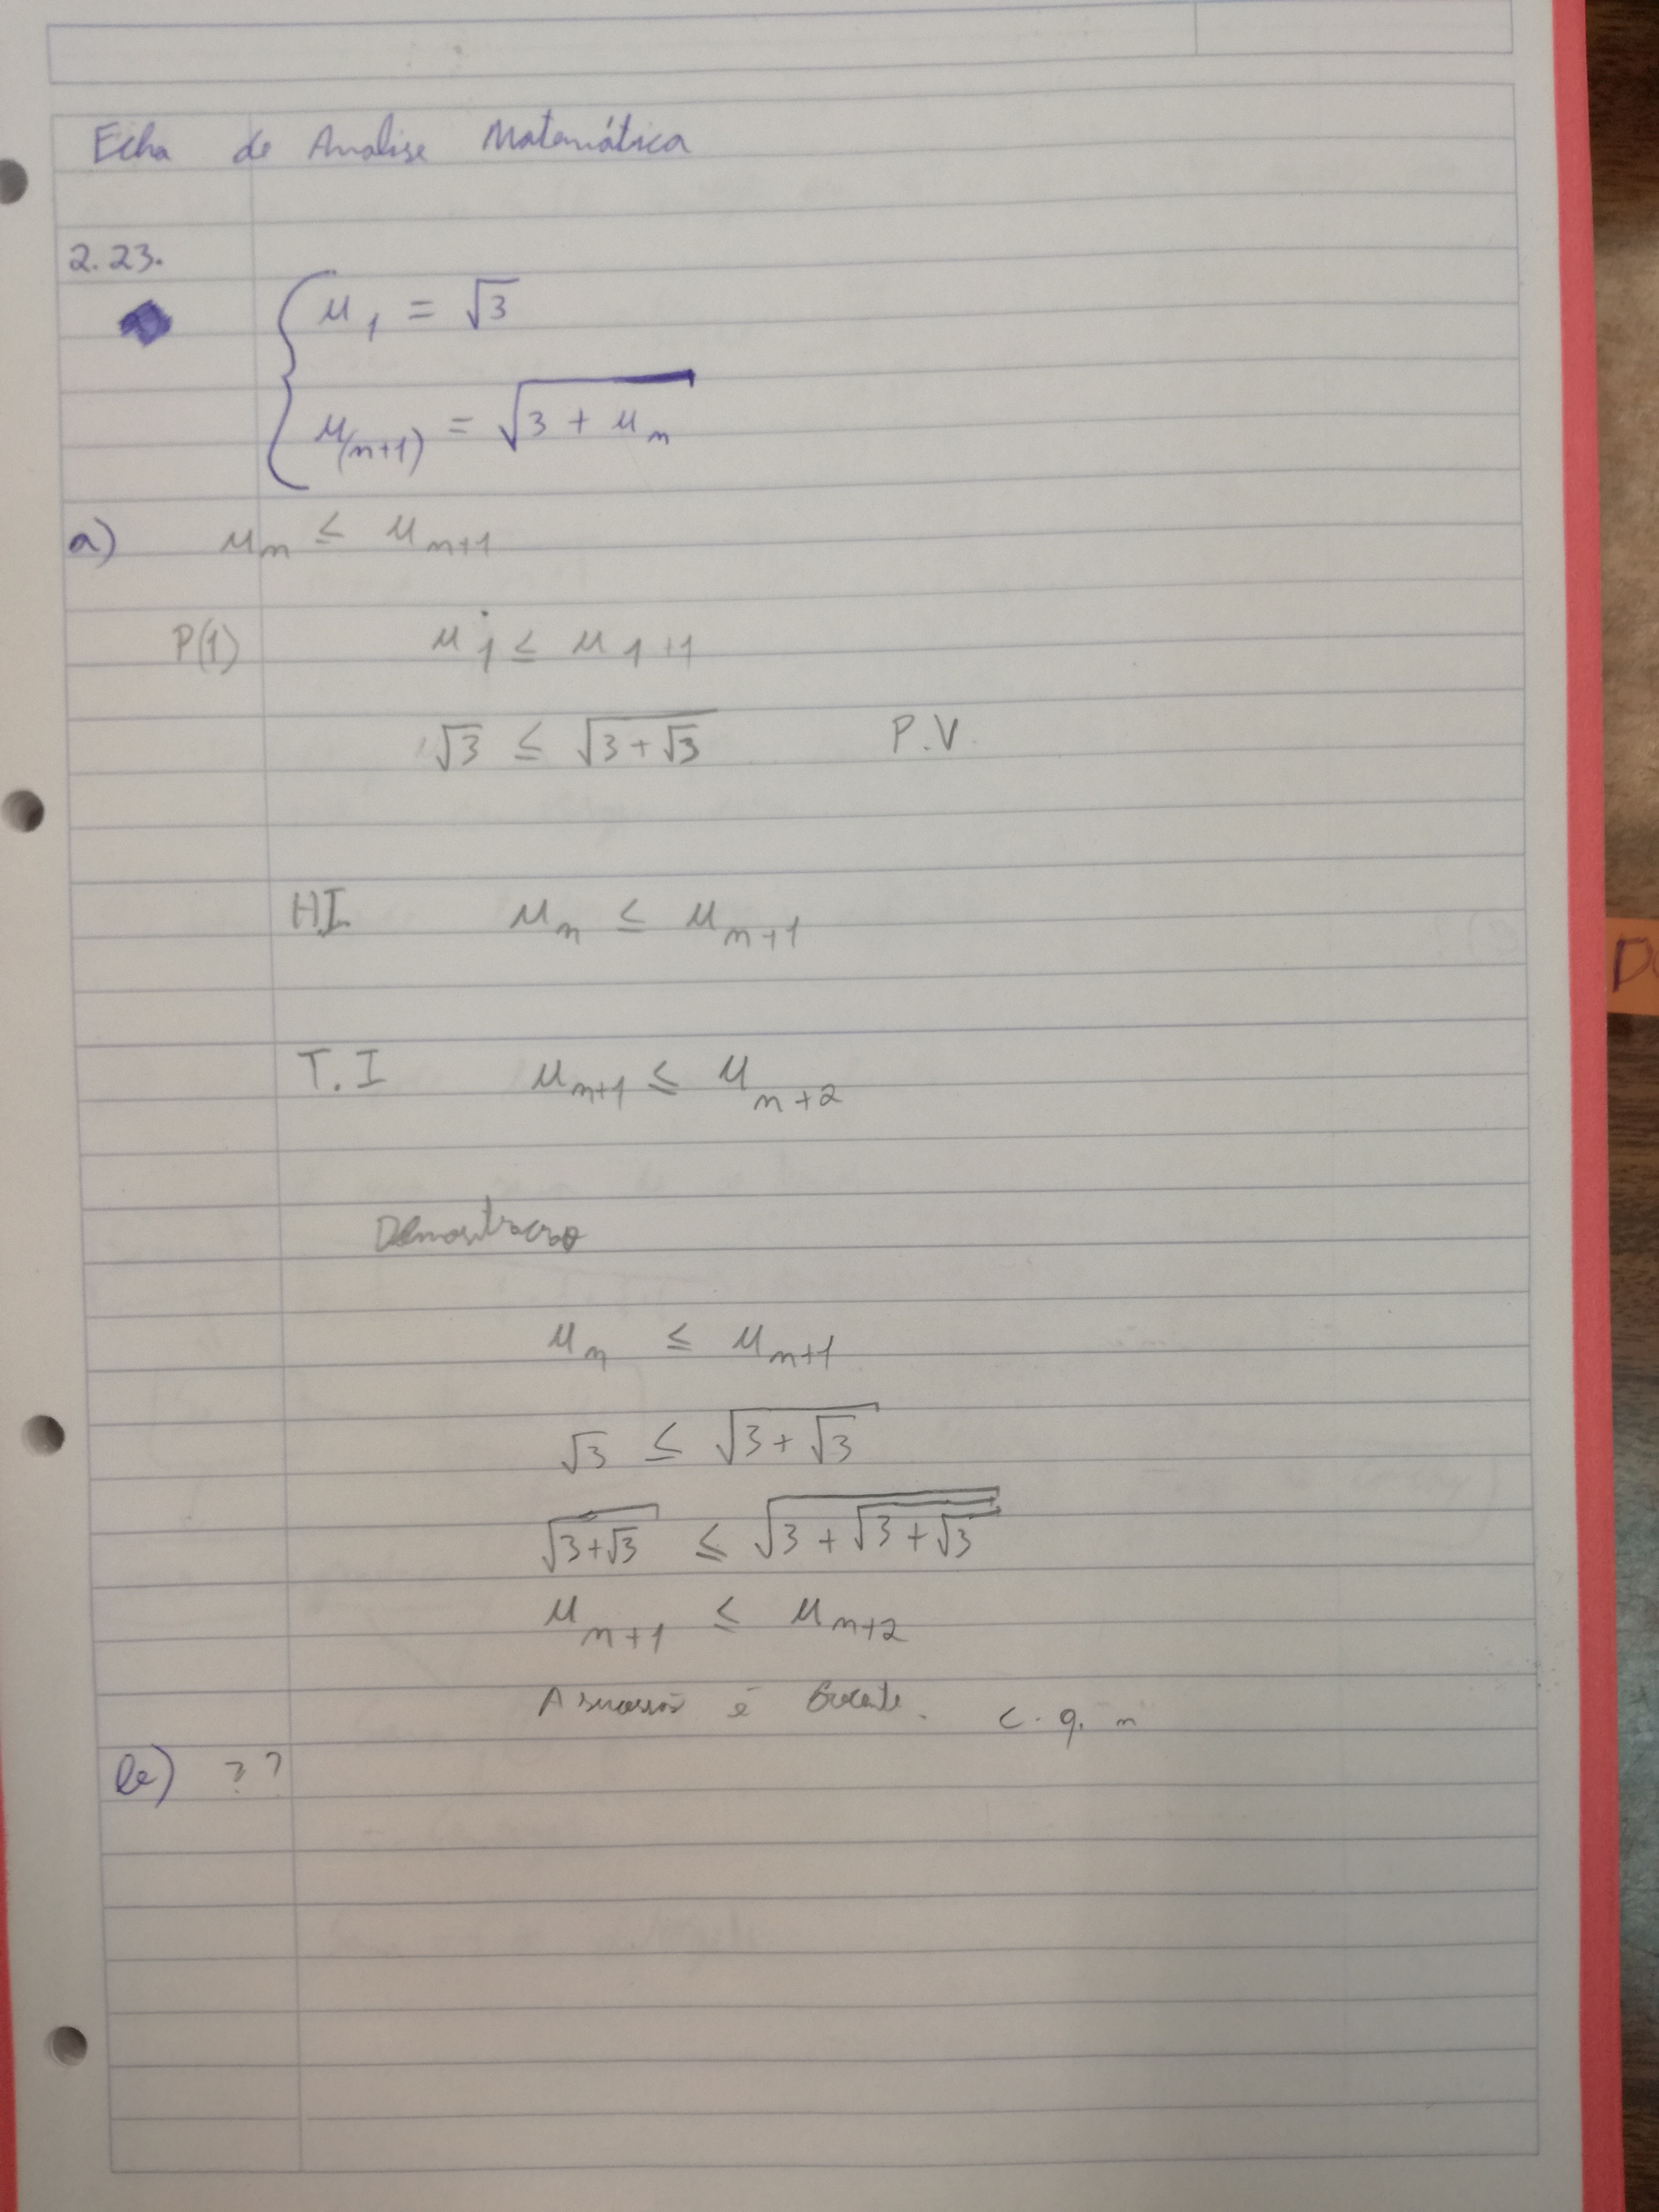 Ficha de Análise Matemática
2.23.
u₁ = √3
u₍ₙ₊₁₎ = √(3 + uₙ)
a) uₙ ≤ uₙ₊₁
P(1) u₁ ≤ u₁₊₁
√3 ≤ √(3+√3) P.V
H.I. uₙ ≤ uₙ₊₁
T.I uₙ₊₁ ≤ uₙ₊₂
Demostracao
uₙ ≤ uₙ₊₁
√3 ≤ √(3+√3)
√(3+√3) ≤ √(3+√(3+√3))
uₙ₊₁ ≤ uₙ₊₂
A sucessão é crescente. c. q. m
b) ??